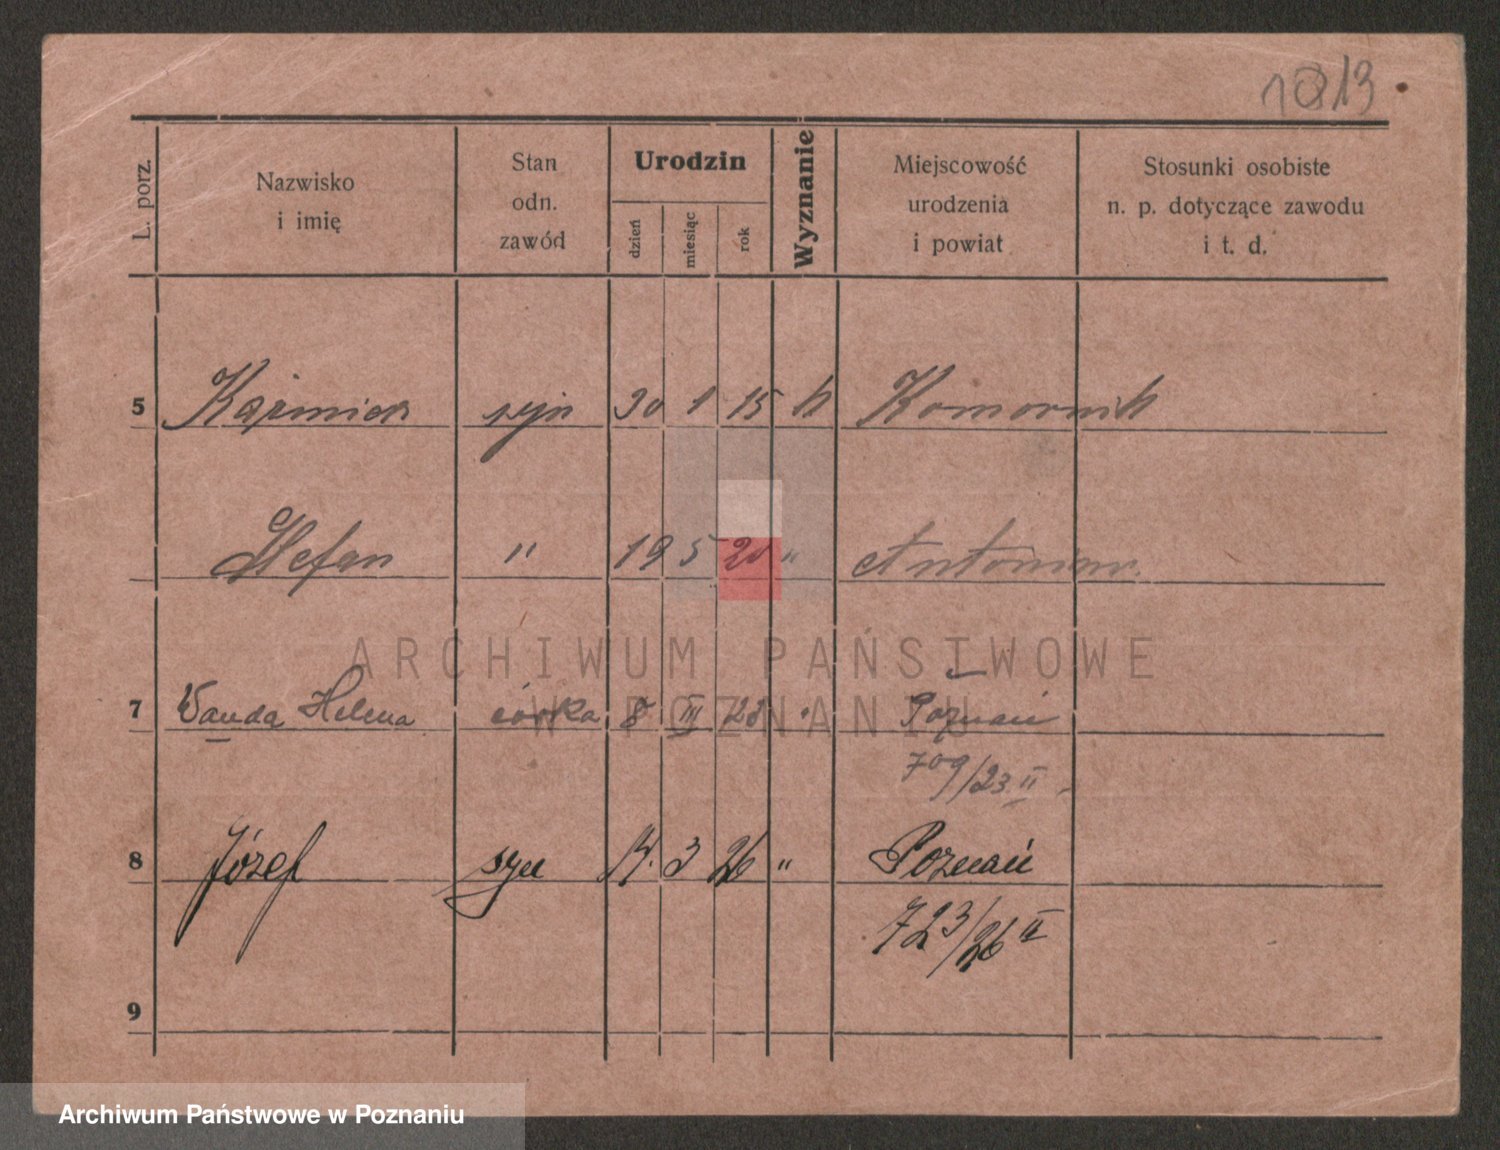 1013
L. porz.
Nazwisko
i imię
Stan
odn.
zawód
Urodzin
dzień
miesiąc
rok
Wyznanie
Miejscowość
urodzenia
i powiat
Stosunki osobiste
n. p. dotyczące zawodu
i t. d.
5 syn 30 1 15 k Komornik
Stefan " 19 5 20 "
7 Wanda Helena córka 8 III 23 " Poznań
709/23 II
8 Józef syn 14. 3 26 " Poznań
723/26 II
9
ARCHIWUM PAŃSTWOWE
W POZNANIU
Archiwum Państwowe w Poznaniu